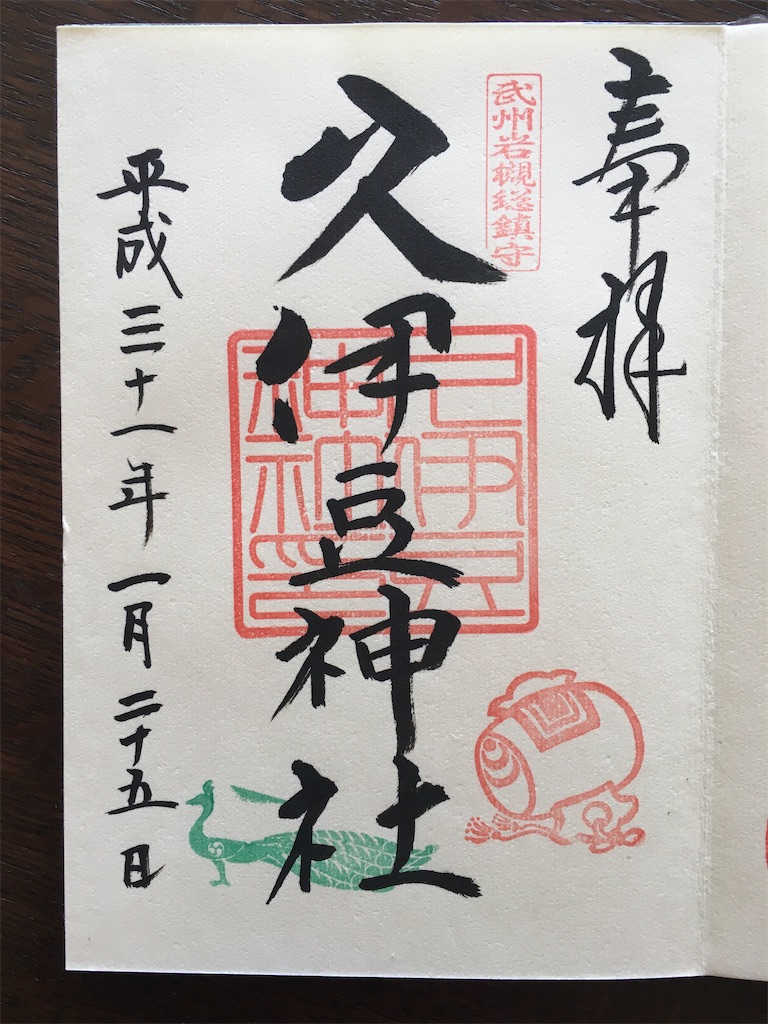 奉拝
武州岩槻総鎮守
久伊豆神社
平成三十一年一月二十五日